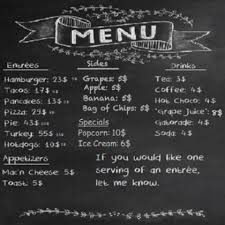 MENU
Entrées
Hamburger: 23$
Tacos: 17$
Pancakes: 13$
Pizza: 29$
Pie: 43$
Turkey: 55$
Hotdogs: 10$
Appetizers
Ma'n Cheese 5$
Toast: 5$
Sides
Grapes: 5$
Apple: 5$
Banana: 5$
Bag of Chips: 5$
Specials
Popcorn: 10$
Ice Cream: 6$
Drinks
Tea: 3$
Coffee: 4$
Hot Choco: 4$
"Grape Juice": 8$
Gatorade: 4$
Soda: 4$
If you would like one
serving of an entrée,
let me know.